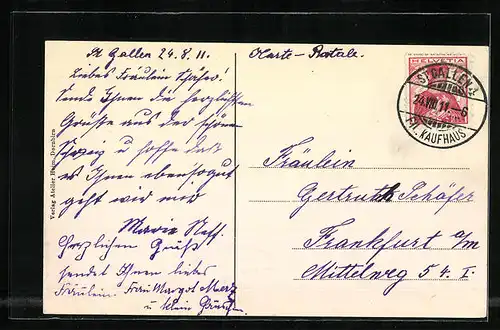 St. Gallen 24.8.11.
Carte-Postale.
Liebes Fräulein Schäfer!
Sende Ihnen die herzlichsten
Grüsse aus der schönen
Schweiz u hoffe daß
es Ihnen ebensogut
geht wie mir
Marie Neff.
Herzlichen Gruß
sendet Ihnen liebes
Fräulein. Frau Margot Merz
u. klein
Verlag Atelier Dornbirn
HELVETIA
ST. GALLEN 1
24.VIII.11.-6
FIL. KAUFHAUS
Fräulein
Gertruth Schäfer
Frankfurt a/m
Mittelweg 54. I.